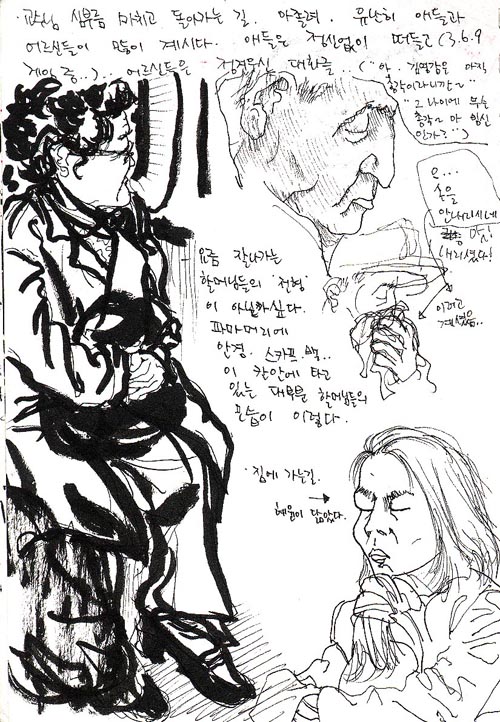 · 교수님 심부름 마치고 돌아가는 길. 아줄려. 유난히 애들과
어르신들이 많이 계시다. 애들은 정신없이 떠들고 (3.6.9
게임 중..)... 어르신들은 정겨우신 대화를.. ("아. 김영감은 아직
총각이라니깐~"
"그 나이에 무슨
총각~ 아
인가?")
오...
손을
안내리시네
앗!
내리셨다!
이러고
계셨음..
요즘 잘나가는
할머님들의 '전형'
이 아닐까싶다.
파마머리에
안경. 스카프 백..
이 칸안에 타고
있는 대부분 할머님들의
모습이 이렇다.
· 집에 가는길.
닮았다.